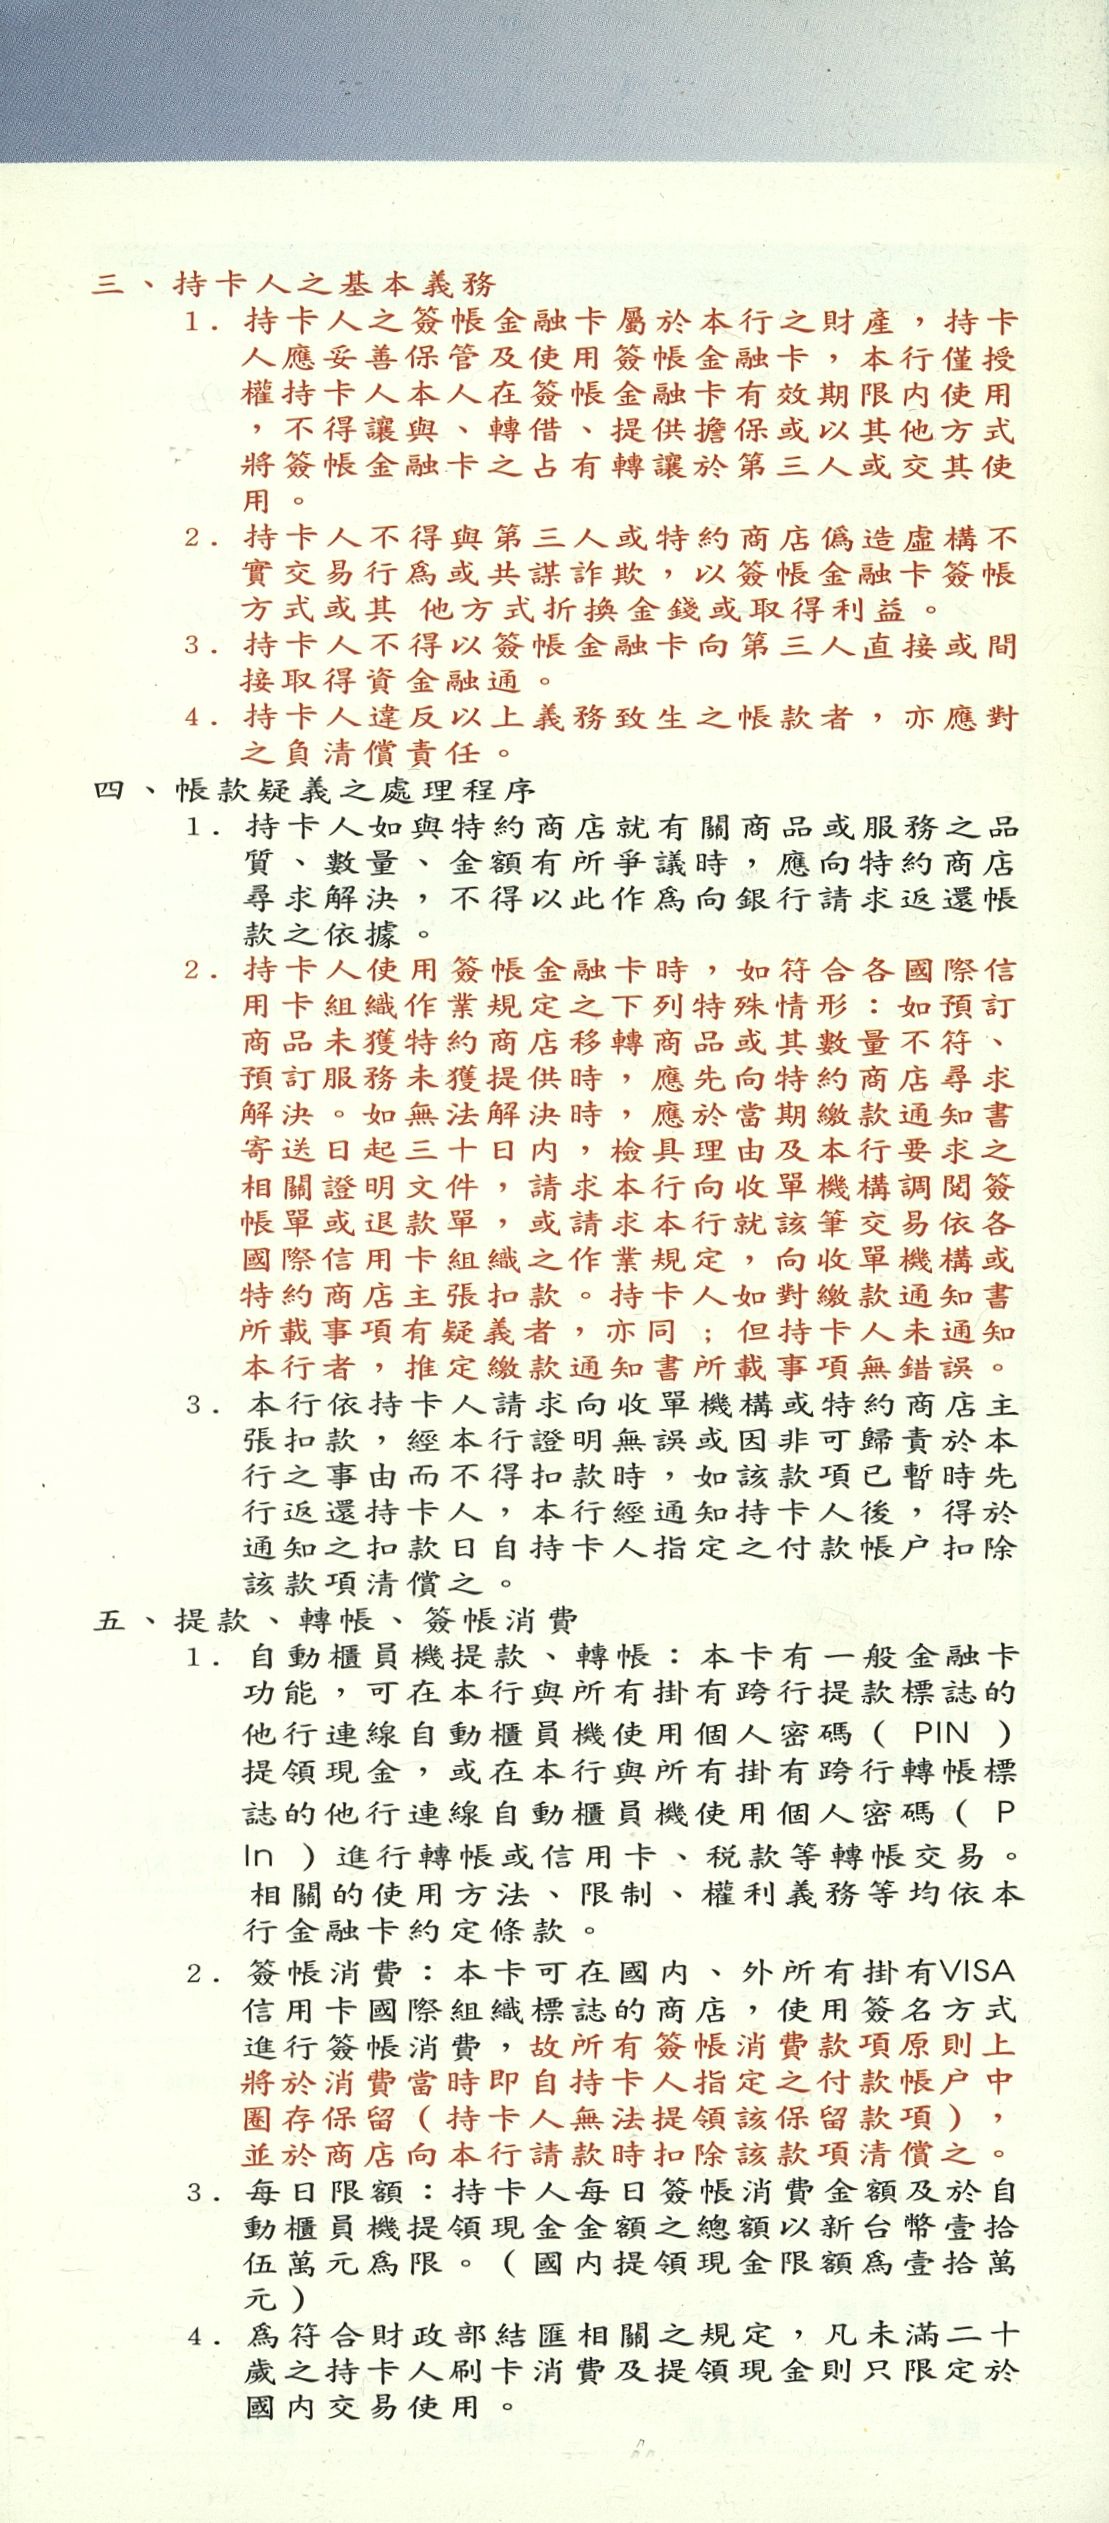 三、持卡人之基本義務
1. 持卡人之簽帳金融卡屬於本行之財產，持卡
人應妥善保管及使用簽帳金融卡，本行僅授
權持卡人本人在簽帳金融卡有效期限內使用
，不得讓與、轉借、提供擔保或以其他方式
將簽帳金融卡之占有轉讓於第三人或交其使
用。
2. 持卡人不得與第三人或特約商店偽造虛構不
實交易行為或共謀詐欺，以簽帳金融卡簽帳
方式或其 他方式折換金錢或取得利益。
3. 持卡人不得以簽帳金融卡向第三人直接或間
接取得資金融通。
4. 持卡人違反以上義務致生之帳款者，亦應對
之負清償責任。
四、帳款疑義之處理程序
1. 持卡人如與特約商店就有關商品或服務之品
質、數量、金額有所爭議時，應向特約商店
尋求解決，不得以此作為向銀行請求返還帳
款之依據。
2. 持卡人使用簽帳金融卡時，如符合各國際信
用卡組織作業規定之下列特殊情形：如預訂
商品未獲特約商店移轉商品或其數量不符、
預訂服務未獲提供時，應先向特約商店尋求
解決。如無法解決時，應於當期繳款通知書
寄送日起三十日內，檢具理由及本行要求之
相關證明文件，請求本行向收單機構調閱簽
帳單或退款單，或請求本行就該筆交易依各
國際信用卡組織之作業規定，向收單機構或
特約商店主張扣款。持卡人如對繳款通知書
所載事項有疑義者，亦同；但持卡人未通知
本行者，推定繳款通知書所載事項無錯誤。
3. 本行依持卡人請求向收單機構或特約商店主
張扣款，經本行證明無誤或因非可歸責於本
行之事由而不得扣款時，如該款項已暫時先
行返還持卡人，本行經通知持卡人後，得於
通知之扣款日自持卡人指定之付款帳戶扣除
該款項清償之。
五、提款、轉帳、簽帳消費
1. 自動櫃員機提款、轉帳：本卡有一般金融卡
功能，可在本行與所有掛有跨行提款標誌的
他行連線自動櫃員機使用個人密碼( PIN )
提領現金，或在本行與所有掛有跨行轉帳標
誌的他行連線自動櫃員機使用個人密碼( P
In )進行轉帳或信用卡、稅款等轉帳交易。
相關的使用方法、限制、權利義務等均依本
行金融卡約定條款。
2. 簽帳消費：本卡可在國內、外所有掛有VISA
信用卡國際組織標誌的商店，使用簽名方式
進行簽帳消費，故所有簽帳消費款項原則上
將於消費當時即自持卡人指定之付款帳戶中
圈存保留(持卡人無法提領該保留款項)，
並於商店向本行請款時扣除該款項清償之。
3. 每日限額：持卡人每日簽帳消費金額及於自
動櫃員機提領現金金額之總額以新台幣壹拾
伍萬元為限。(國內提領現金限額為壹拾萬
元)
4. 為符合財政部結匯相關之規定，凡未滿二十
歲之持卡人刷卡消費及提領現金則只限定於
國內交易使用。